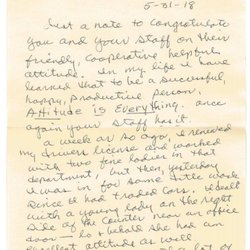 5-31-18
Just a note to congratulate
you and your staff on their
friendly, cooperative helpful
attitude. In my life I have
learned that to be a successful,
happy, productive person.
Attitude is Everything. once
again your staff has it.
A week or so ago, I renewed
my drivers license and worked
with two fine ladies in that
department, but then, yesterday
I was in for some title work
since I had traded cars. I dealt
with a young lady on the right
side of the counter near an office
door — lo & behold she had an
excellent attitude as well